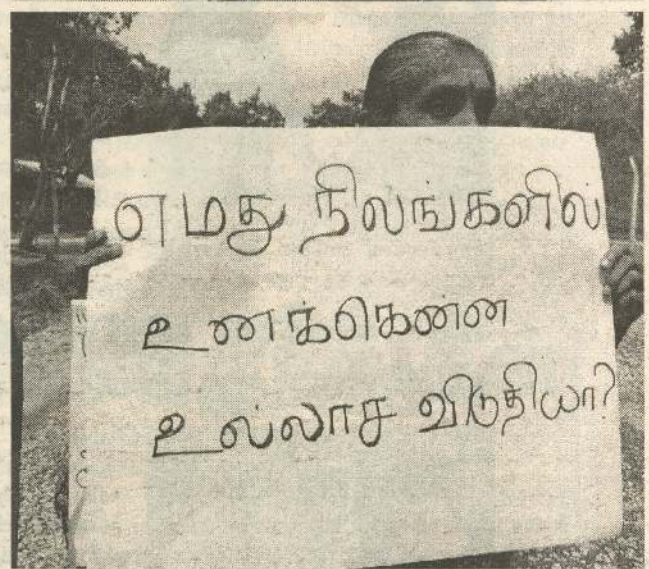 எமது நிலங்களில்
உனக்கென்ன
உல்லாச விடுதியா?